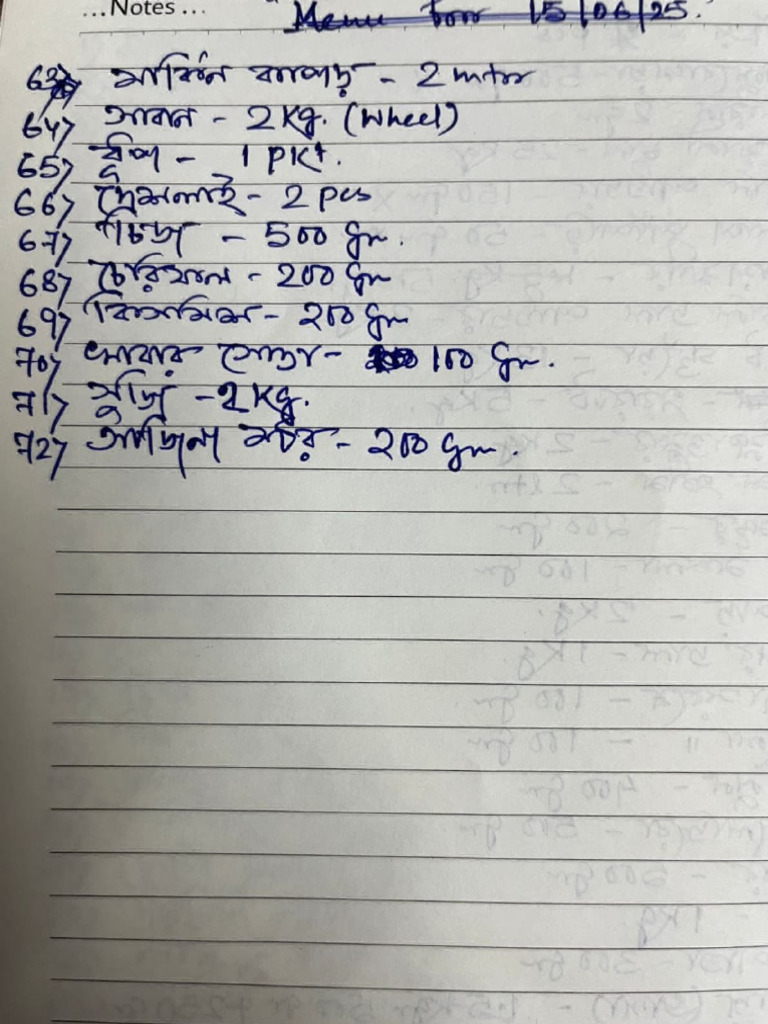 ...Notes...
Menu for 15/06/25.
63> মার্কিন কাপড় - 2 mter
64> সাবান - 2 Kg. (Wheel)
65> ধুপ - 1 PKt.
66> দেশলাই - 2 pcs
67> চিজ - 500 gm.
68> চেরিফল - 200 gm
69> কিসমিস - 200 gm
70> খাবার সোডা - 100 gm.
71> সুজি - 2 Kg.
72> আজিনা মটর - 200 gm.